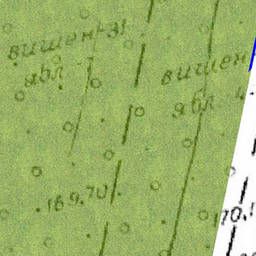 вишен
ябл
вишен
ябл
169.70
170.